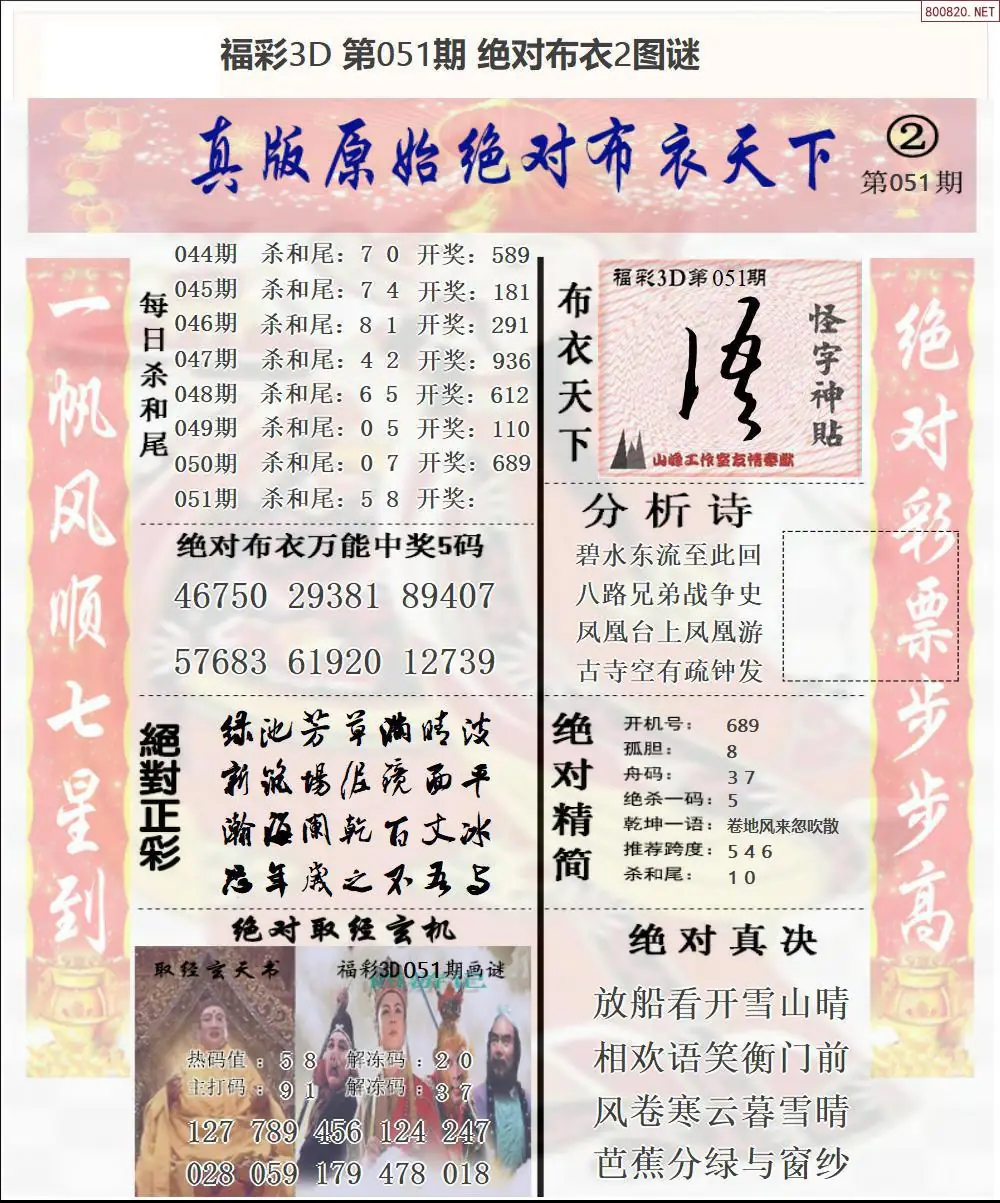 800820.NET
福彩3D 第051期 绝对布衣2图谜
真版原始绝对布衣天下
②
第051期
一帆风顺七星到
每日杀和尾
044期 杀和尾：7 0 开奖：589
045期 杀和尾：7 4 开奖：181
046期 杀和尾：8 1 开奖：291
047期 杀和尾：4 2 开奖：936
048期 杀和尾：6 5 开奖：612
049期 杀和尾：0 5 开奖：110
050期 杀和尾：0 7 开奖：689
051期 杀和尾：5 8 开奖：
绝对布衣万能中奖5码
46750 29381 89407
57683 61920 12739
絕對正彩
绿池芳草满晴波
新筑場泥镜面平
瀚海阑乾百丈冰
恐年歲之不吾与
绝对取经玄机
取经玄天书
福彩3D051期画谜
热码值：5 8 解冻码：2 0
主打码：9 1 解冻码：3 7
127 789 456 124 247
028 059 179 478 018
布衣天下
福彩3D第051期
怪字神貼
山峰工作室友情奉献
分析诗
碧水东流至此回
八路兄弟战争史
凤凰台上凤凰游
古寺空有疏钟发
绝对精简
开机号： 689
孤胆： 8
舟码： 3 7
绝杀一码： 5
乾坤一语： 卷地风来忽吹散
推荐跨度： 5 4 6
杀和尾： 1 0
绝对真决
放船看开雪山晴
相欢语笑衡门前
风卷寒云暮雪晴
芭蕉分绿与窗纱
绝对彩票步步高